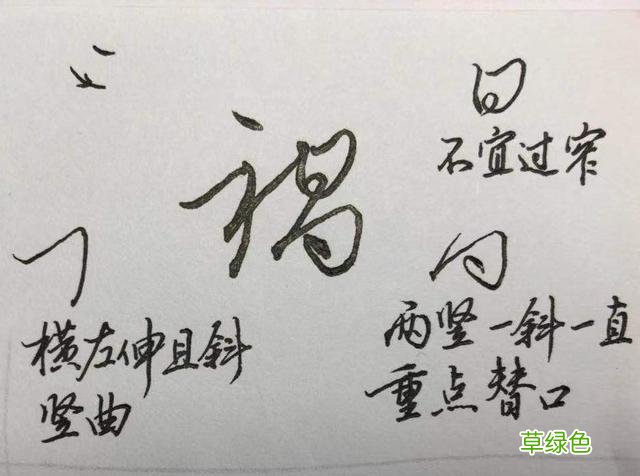 禍
不宜过窄
横左伸且斜
竖曲
两竖一斜一直
重点替口
草绿色